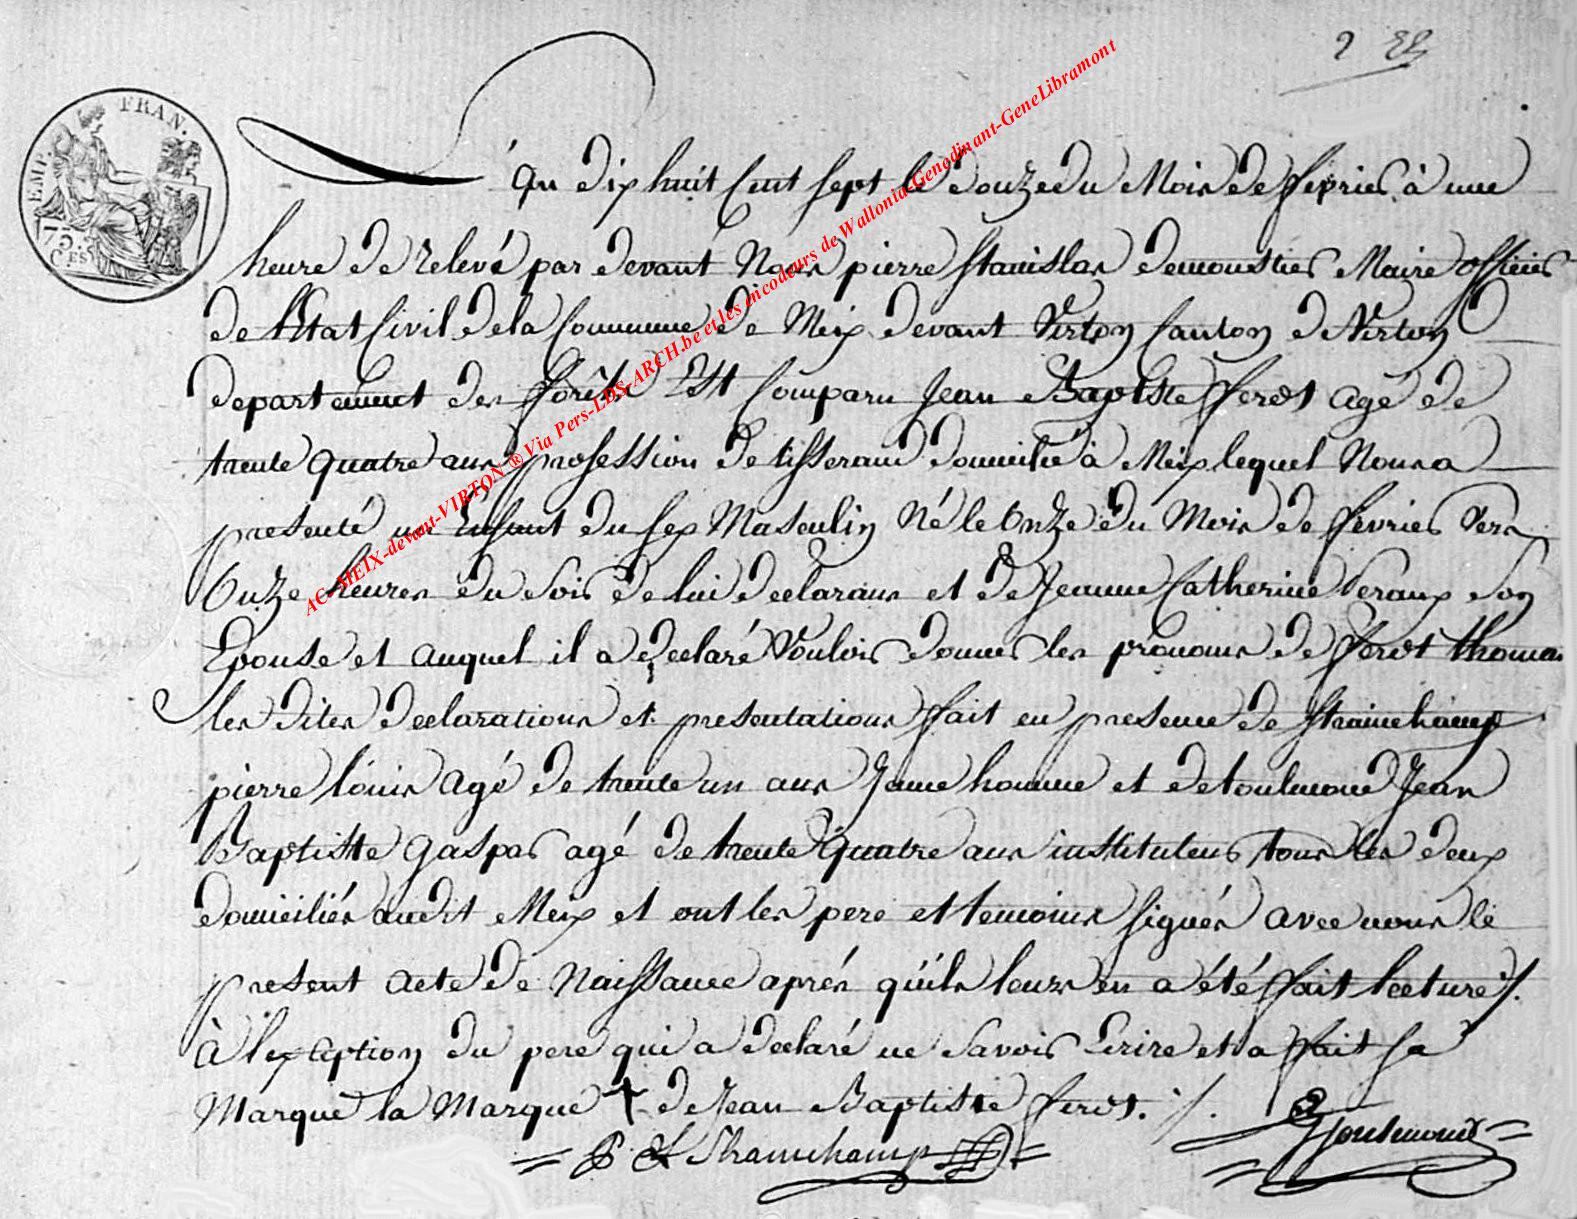 2
EMP. FRAN.
75. CES
L'an dix huit Cent Sept le douze du Mois de fevrier à une
heure de relevé par devant Nous pierre Stanislas demoustier Maire officier
de l'Etat Civil de la Commune de Meix devant Virton Canton de Virton
departement des forêts Est Comparu Jean Baptiste fferot agé de
trente quatre ans profession de tisserand domicilié à Meix lequel Nous a
presenté un Enfant du sex Masculin Né le Onze du Mois de fevrier vers
Onze heures du Soir de lui declarans et de Jeanne Catherine Son
Epouse et auquel il a declaré Vouloir donner les prénoms de fferot thomas
les dites declarations et presentations ffait en presence de Strainchamp
pierre louis agé de trente un ans Jeune homme et de toulmond Jean
Baptistte Gaspar agé de trente quatre ans instituteur tous les deux
domiciliés audit Meix et ont les pere et temoins signés avec nous le
present acte de Naissance aprés quils leurs en a été ffait lecture ./.
à lexception du pere qui a declaré ne Savoir Ecrire et a ffait sa
Marque la Marque + de Jean Baptiste fferot. ./.
P L Strainchamp Toulmond
AC-MEIX-devant-VIRTON ® Via Pers-LDS-ARCH.be et les encodeurs de Wallonia-Genedinant-GeneLibramont